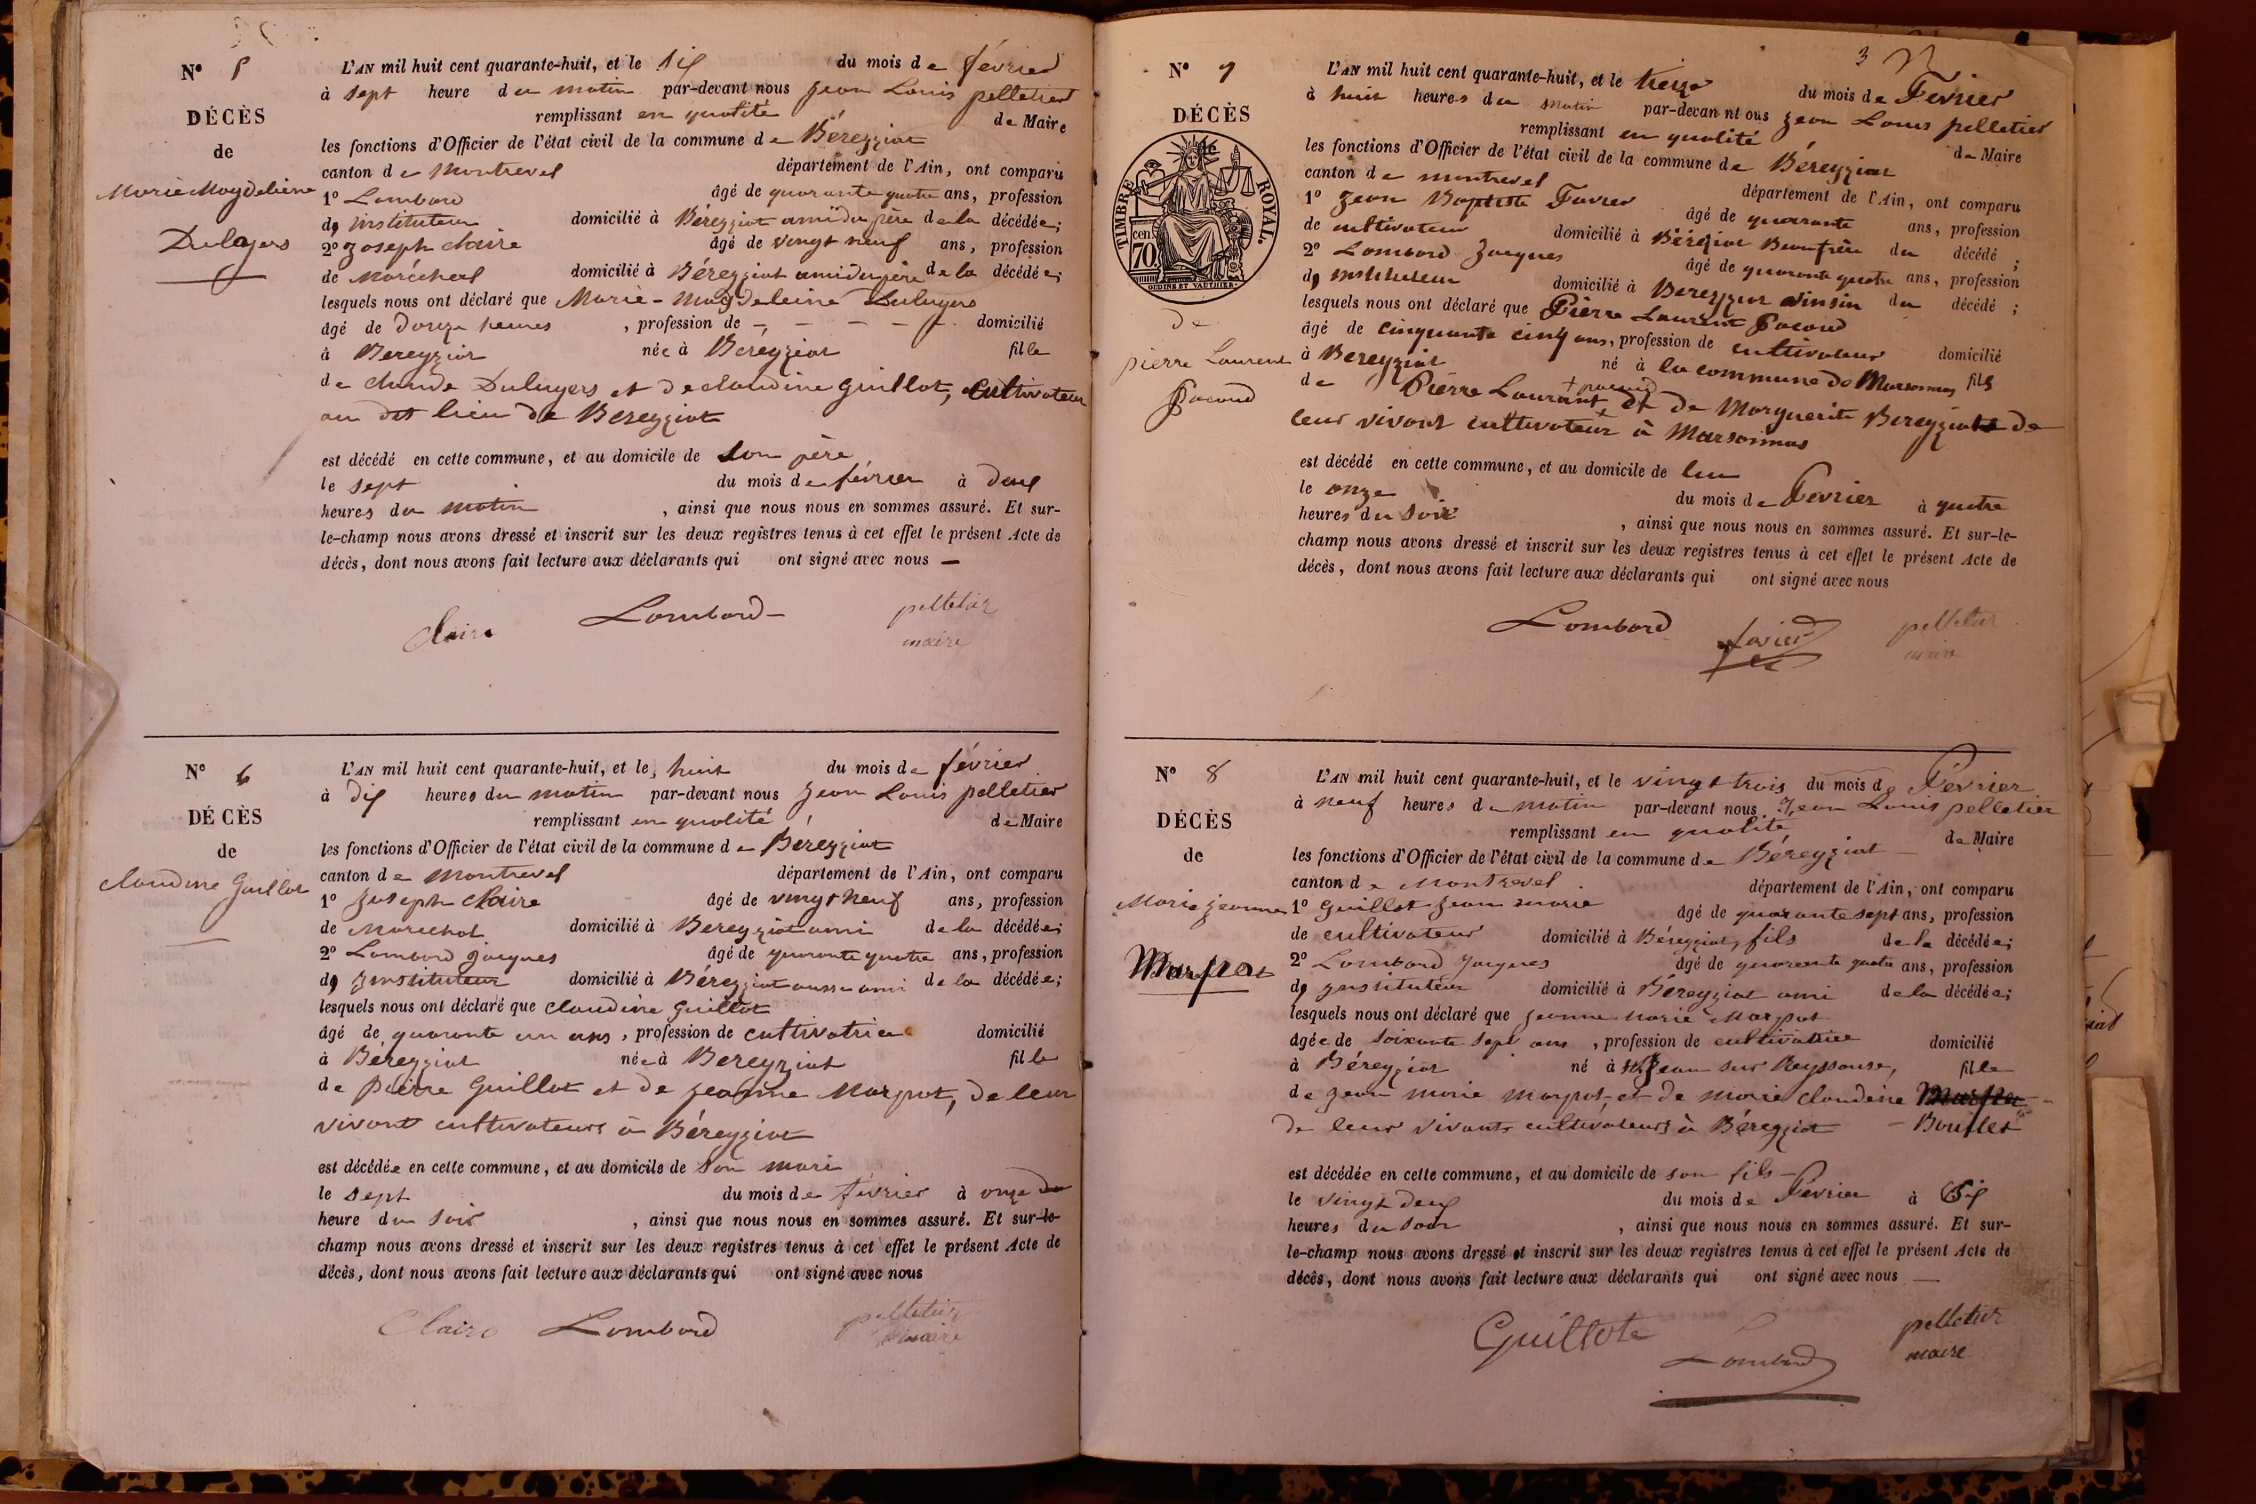 N° 5
DÉCÈS
de
Marie Magdeleine
Duluyers
L'AN mil huit cent quarante-huit, et le six du mois de février
à sept heure du matin par-devant nous Jean Louis pelletier
remplissant en qualité de Maire
les fonctions d'Officier de l'état civil de la commune de Béreyziat
canton de Montrevel département de l'Ain, ont comparu
1° Lombard âgé de quarante quatre ans, profession
d' instituteur domicilié à Béreyziat ami du père de la décédée;
2° Joseph Claire âgé de vingt neuf ans, profession
de Maréchal domicilié à Béreyziat ami du père de la décédée;
lesquels nous ont déclaré que Marie-Magdeleine Duluyers
âgé de douze heures , profession de - - - - - domicilié
à Bereyziat née à Bereyziat fille
de claude Duluyers et de claudine guillot, cultivateur
au dit lieu de Bereyziat
est décédé en cette commune, et au domicile de son père
le sept du mois de février à deux
heures du matin , ainsi que nous nous en sommes assuré. Et sur-
le-champ nous avons dressé et inscrit sur les deux registres tenus à cet effet le présent Acte de
décès, dont nous avons fait lecture aux déclarants qui ont signé avec nous —
Claire Lombard pelletier
maire
N° 6
DÉCÈS
de
claudine Guillot
L'AN mil huit cent quarante-huit, et le, huit du mois de février
à dix heures du matin par-devant nous Jean Louis pelletier
remplissant en qualité de Maire
les fonctions d'Officier de l'état civil de la commune de Béreyziat
canton de Montrevel département de l'Ain, ont comparu
1° Joseph Claire âgé de vingt neuf ans, profession
de Marechal domicilié à Bereyziat ami de la décédée;
2° Lombard Jacques âgé de quarante quatre ans, profession
d' Instituteur domicilié à Béreyziat aussi ami de la décédée;
lesquels nous ont déclaré que claudine Guillot
âgé de quarante un ans , profession de cultivatrice domicilié
à Béreyziat née à Bereyziat fille
de pierre Guillot et de jeanne Marpot, de leur
vivant cultivateurs à Béreyziat
est décédée en cette commune, et au domicile de son mari
le sept du mois de février à onze du
heure du soir , ainsi que nous nous en sommes assuré. Et sur-le-
champ nous avons dressé et inscrit sur les deux registres tenus à cet effet le présent Acte de
décès, dont nous avons fait lecture aux déclarants qui ont signé avec nous
Claire Lombard pelletier
maire
3
N° 7
DÉCÈS
TIMBRE ROYAL.
cen
70
OUDINE ET VAUTHIER.
de
pierre Laurent
Pacoud
L'AN mil huit cent quarante-huit, et le treize du mois de Fevrier
à huit heures du matin par-devan nt ous Jean Louis pelletier
remplissant en qualité de Maire
les fonctions d'Officier de l'état civil de la commune de Béreyziat
canton de montrevel département de l'Ain, ont comparu
1° Jean Baptiste Favier âgé de quarante ans, profession
de cultivateur domicilié à Béréziat Beaufrère du décédé ;
2° Lombard Jacques âgé de quarante quatre ans, profession
d' instituteur domicilié à Bereyziat voisin du décédé ;
lesquels nous ont déclaré que Pierre Laurent Pacoud
âgé de cinquante cinq ans, profession de cultivateur domicilié
à Bereyziat né à la commune de Marsonnas fils
de Pierre Laurant + pacoud et de Marguerite Bereyziat de
leur vivant cultivateur à Marsonnas
est décédé en cette commune, et au domicile de lui
le onze du mois de Fevrier à quatre
heures du soir , ainsi que nous nous en sommes assuré. Et sur-le-
champ nous avons dressé et inscrit sur les deux registres tenus à cet effet le présent Acte de
décès, dont nous avons fait lecture aux déclarants qui ont signé avec nous
Lombard favier pelletier
maire
N° 8
DÉCÈS
de
Marie jeanne
Marpot
L'AN mil huit cent quarante-huit, et le vingt trois du mois de Fevrier
à neuf heures du matin par-devant nous Jean Louis pelletier
remplissant en qualité de Maire
les fonctions d'Officier de l'état civil de la commune de Béreyziat
canton de Montrevel département de l'Ain, ont comparu
1° guillot jean marie âgé de quarante sept ans, profession
de cultivateur domicilié à Béreyziat, fils de la décédée;
2° Lombard Jacques âgé de quarante quatre ans, profession
d' instituteur domicilié à Béreyziat ami de la décédée;
lesquels nous ont déclaré que jeanne Marie Marpot
âgée de soixante sept ans , profession de cultivatrice domicilié
à Béreyziat né à St Jean sur Reyssouse, fille
de jean marie marpot, et de marie claudine Marpot
de leur vivants cultivateurs à Béreyziat - Bouilet
est décédée en cette commune, et au domicile de son fils
le vingt deux du mois de Fevrier à Six
heures du soir , ainsi que nous nous en sommes assuré. Et sur-
le-champ nous avons dressé et inscrit sur les deux registres tenus à cet effet le présent Acte de
décès, dont nous avons fait lecture aux déclarants qui ont signé avec nous —
Guillote Lombard pelletier
maire